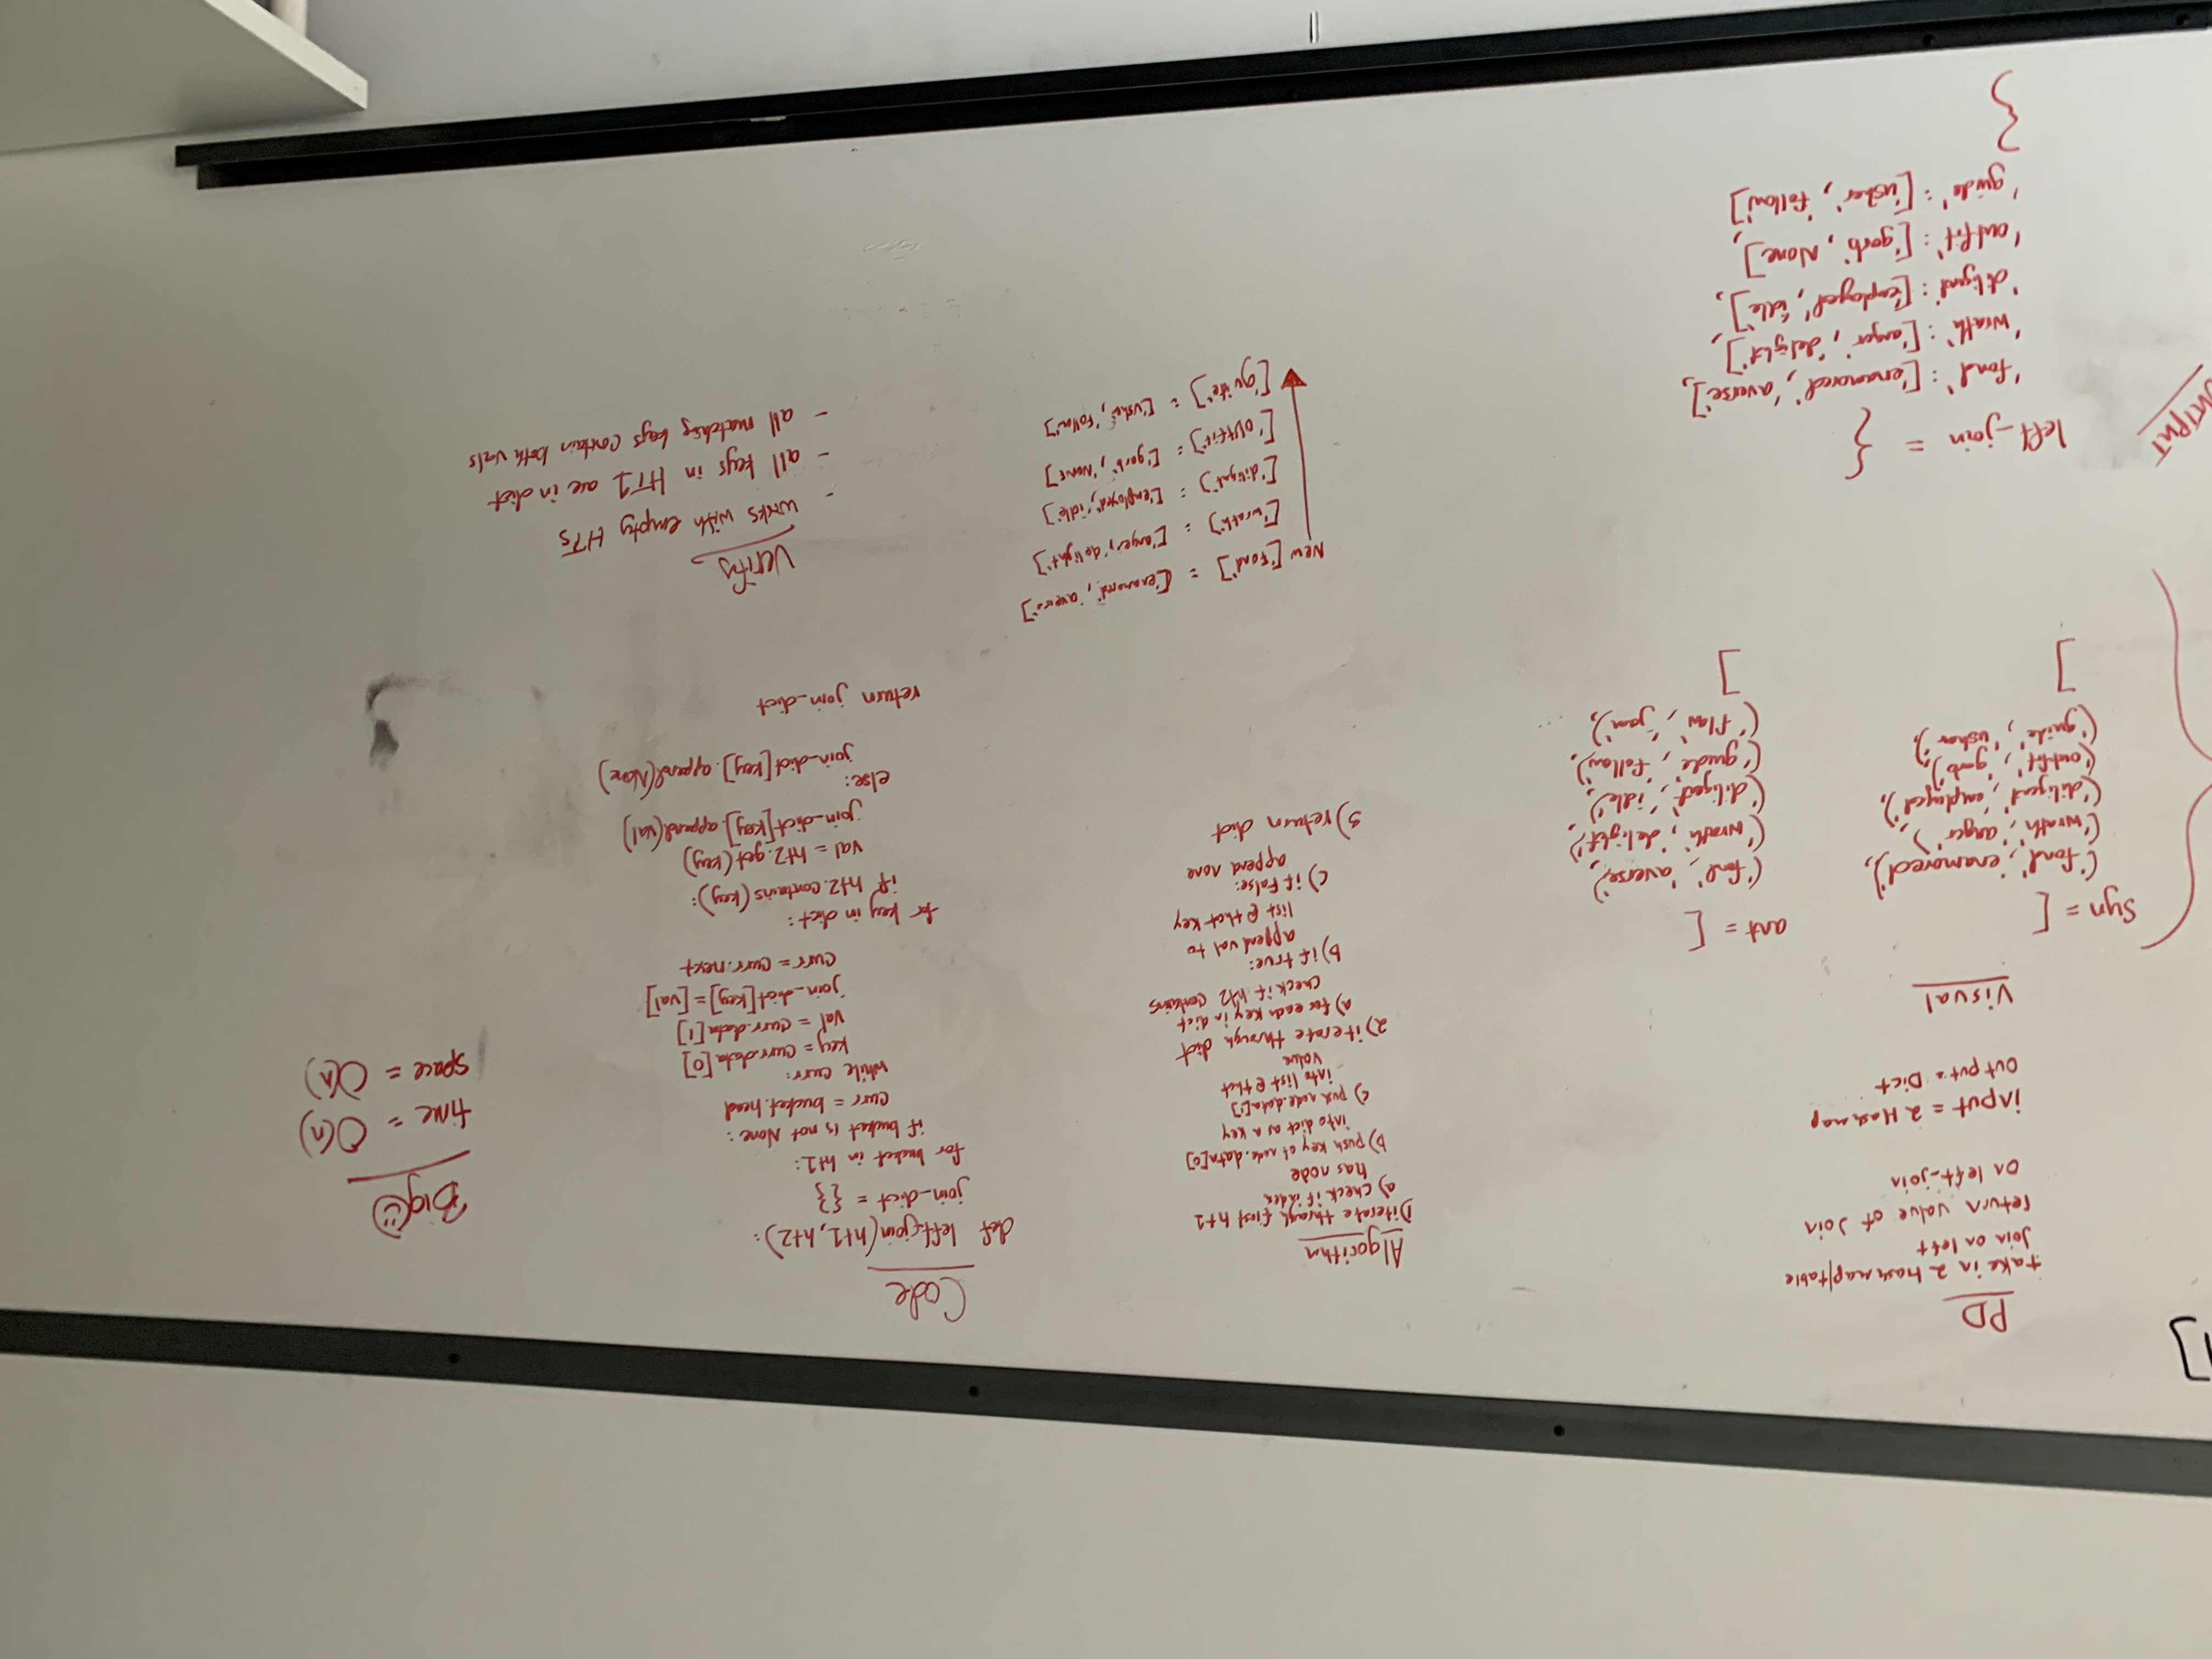 1]
PD
take in 2 Hashmap/table
Join on left
return value of Join
on left_join
input = 2 Hashmap
output = Dict
Visual
syn = [
('fond', 'enamored'),
('wrath', 'anger'),
('diligent', 'employed'),
('outfit', 'garb'),
('guide', 'usher'),
]
ant = [
('fond', 'averse'),
('wrath', 'delight'),
('diligent', 'idle'),
('guide', 'follow'),
('flow', 'jam'),
...
]
OUTPUT
left_join = {
'fond': ['enamored', 'averse'],
'wrath': ['anger', 'delight'],
'diligent': ['employed', 'idle'],
'outfit': ['garb', None],
'guide': ['usher', 'follow']
}
Algorithm
1) iterate through first ht1
a) check if index
has node
b) push key of node.data[0]
into dict as a key
c) push node.data[1]
into list @ that
value
2) iterate through dict
a) for each key in dict
check if ht2 contains
b) if true:
append val to
list @ that key
c) if False:
append none
3) return dict
New ['Fond'] = ['enamored', 'averse']
['wrath'] = ['anger', 'delight']
['diligent'] = ['employed', 'idle']
['outfit'] = ['garb', 'NONE']
['guide'] = ['usher', 'Follow']
Code
def left_join(ht1, ht2):
join_dict = {}
for bucket in ht1:
if bucket is not None:
curr = bucket.head
while curr:
key = curr.data[0]
val = curr.data[1]
join_dict[key] = [val]
curr = curr.next
for key in dict:
if ht2.contains(key):
val = ht2.get(key)
join_dict[key].append(val)
else:
join_dict[key].append(None)
return join_dict
Verify
- works with empty HTs
- all keys in HT1 are in dict
- all matching keys contain both vals
Big☺
time = O(n)
space = O(n)